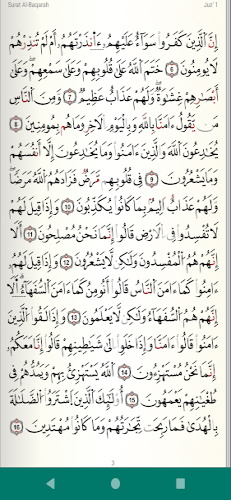 Surat Al-Baqarah Juz' 1
إِنَّ ٱلَّذِينَ كَفَرُوا۟ سَوَآءٌ عَلَيْهِمُۥٓ ءَآنذَرْتَهُمُۥٓ أَمْ لَمْ تُنذِرْهُمْ
لَا يُومِنُونَ ٥ خَتَمَ ٱللَّهُ عَلَىٰ قُلُوبِهِمْ وَعَلَىٰ سَمْعِهِمْ وَعَلَىٰٓ
أَبْصَٰرِهِمْ غِشَٰوَةٌ وَلَهُمْ عَذَابٌ عَظِيمٌ ٧ وَمِنَ ٱلنَّاسِ
مَن يَقُولُ ءَامَنَّا بِٱللَّهِ وَبِٱلْيَوْمِ ٱلَاخِرِ وَمَا هُم بِمُومِنِينَ ٨
يُخَٰدِعُونَ ٱللَّهَ وَٱلَّذِينَ ءَامَنُوا۟ وَمَا يُخَٰدِعُونَ إِلَّآ أَنفُسَهُمْ
وَمَا يَشْعُرُونَ ٩ فِى قُلُوبِهِم مَّرَضٌ فَزَادَهُمُ ٱللَّهُ مَرَضًا
وَلَهُمْ عَذَابٌ اَلِيمٌۢ بِمَا كَانُوا۟ يُكَذِّبُونَ ١٠ وَإِذَا قِيلَ لَهُمْ
لَا تُفْسِدُوا۟ فِى ٱلَارْضِ قَالُوٓا۟ إِنَّمَا نَحْنُ مُصْلِحُونَ ١١ أَلَآ
إِنَّهُمْ هُمُ ٱلْمُفْسِدُونَ وَلَٰكِن لَّا يَشْعُرُونَ ١٢ وَإِذَا قِيلَ لَهُمُۥٓ
ءَامِنُوا۟ كَمَآ ءَامَنَ ٱلنَّاسُ قَالُوٓا۟ أَنُومِنُ كَمَآ ءَامَنَ ٱلسُّفَهَآءُ اَ۬لَآ
إِنَّهُمْ هُمُ ٱلسُّفَهَآءُ وَلَٰكِن لَّا يَعْلَمُونَ ١٣ وَإِذَا لَقُوا۟ ٱلَّذِينَ
ءَامَنُوا۟ قَالُوٓا۟ ءَامَنَّا وَإِذَا خَلَوِا۟ اِلَىٰ شَيَٰطِينِهِمْ قَالُوٓا۟ إِنَّا مَعَكُمُۥٓ
إِنَّمَا نَحْنُ مُسْتَهْزِءُونَ ١٤ ٱللَّهُ يَسْتَهْزِئُ بِهِمْ وَيَمُدُّهُمْ فِى
طُغْيَٰنِهِمْ يَعْمَهُونَ ١٥ أُو۟لَٰٓئِكَ ٱلَّذِينَ ٱشْتَرَوُا۟ ٱلضَّلَٰلَةَ
بِٱلْهُدَىٰ فَمَا رَبِحَت تِّجَٰرَتُهُمْ وَمَا كَانُوا۟ مُهْتَدِينَ ١٦
3